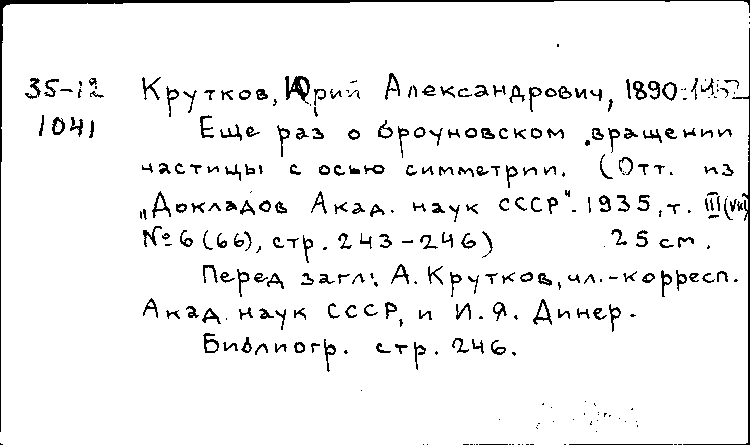 35-12 Крутков, Юрий Александрович, 1890-1952
1041 Еще раз о броуновском вращении
частицы с осью симметрии. (Отт. из
„Докладов Акад. наук СССР". 1935, т. III(VIII)
№ 6 (66), стр. 243-246) 25 см.
Перед загл: А. Крутков, чл.-корресп.
Акад. наук СССР, и И. Я. Динер.
Библиогр. стр. 246.